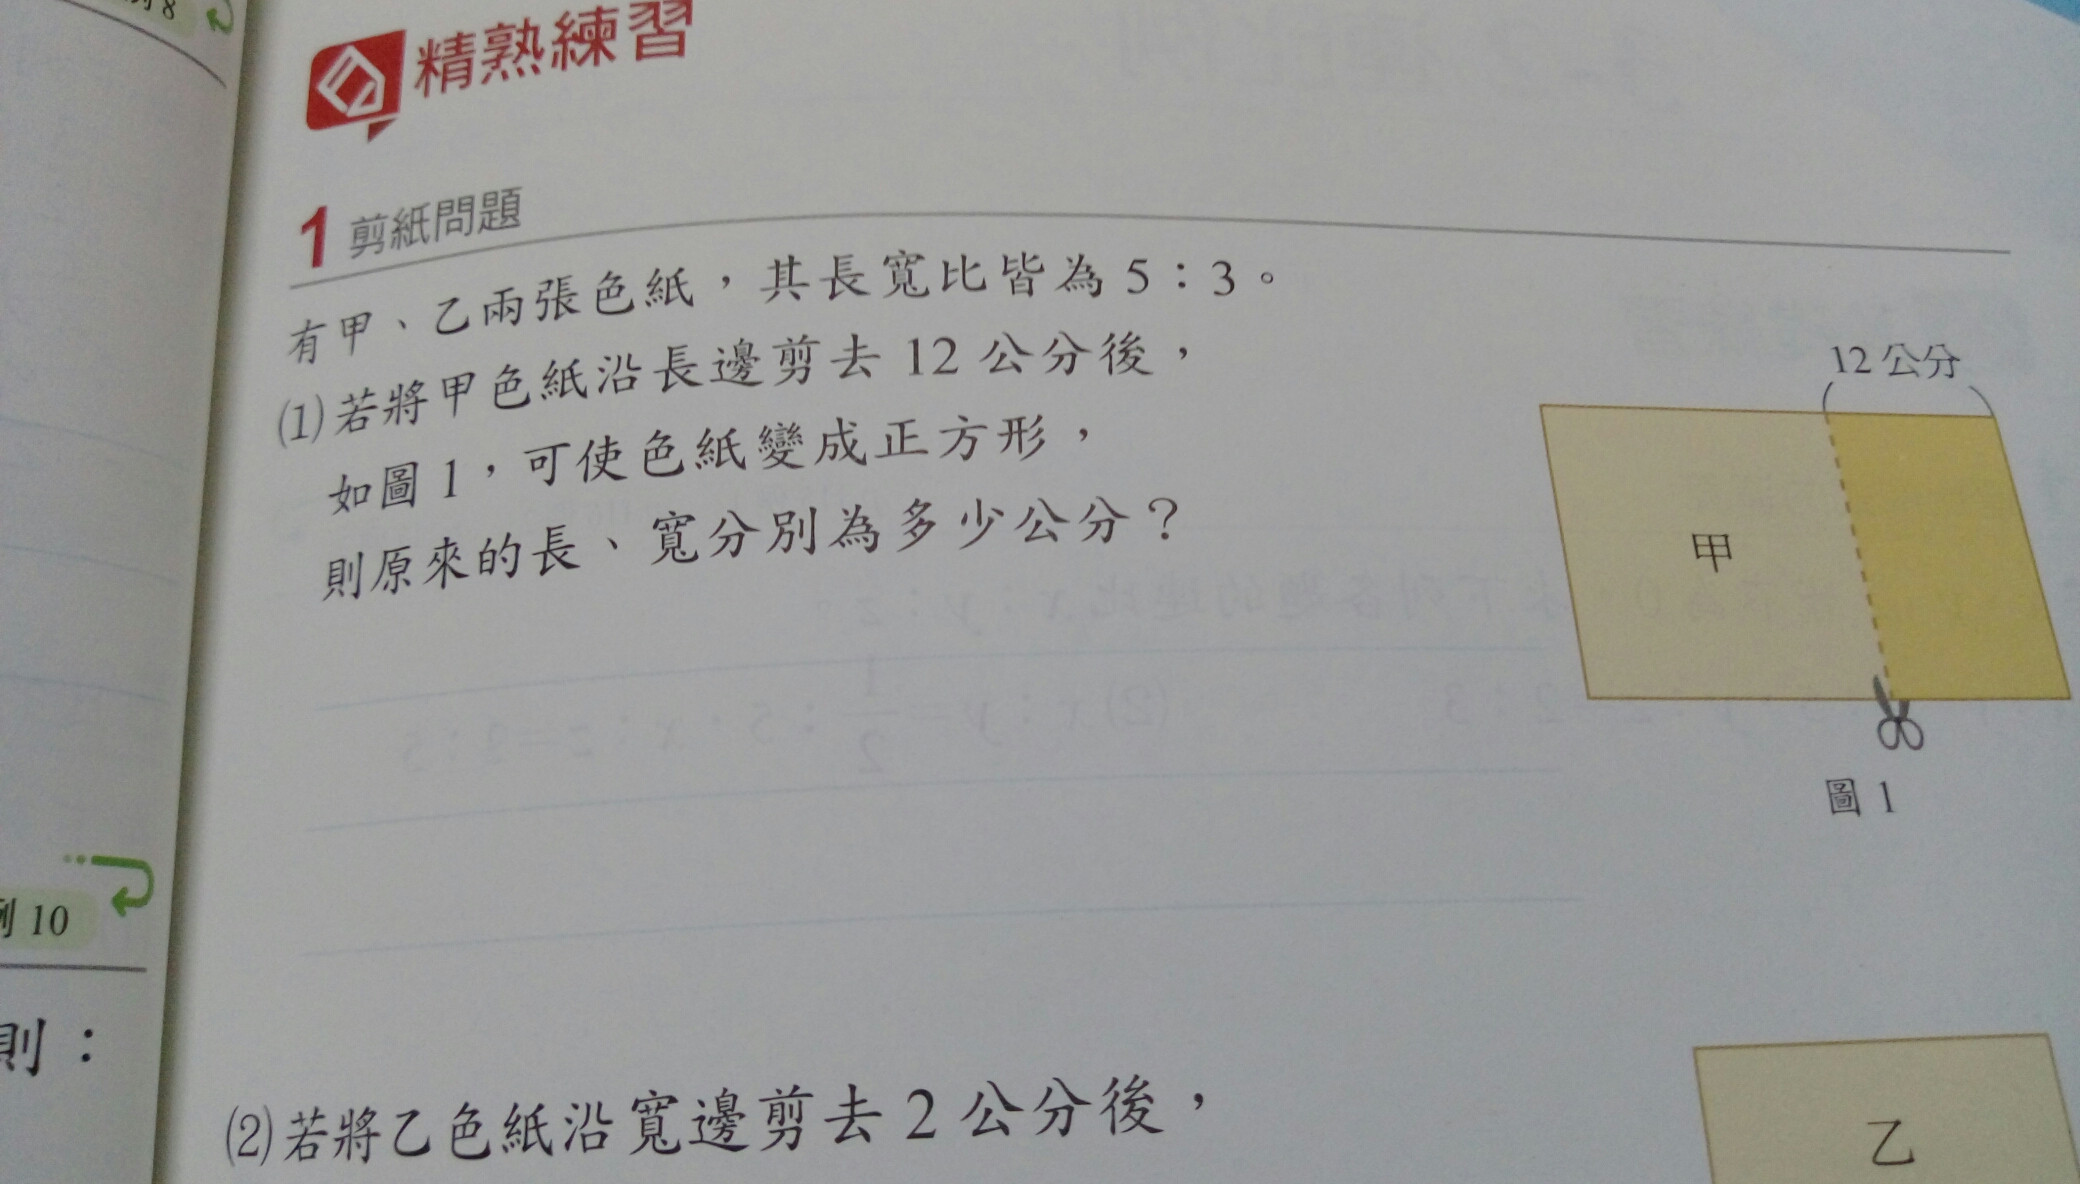 精熟練習
1 剪紙問題
有甲、乙兩張色紙，其長寬比皆為 5：3。
⑴若將甲色紙沿長邊剪去 12 公分後，
如圖 1，可使色紙變成正方形，
則原來的長、寬分別為多少公分？
12 公分
甲
圖 1
10
則：
⑵若將乙色紙沿寬邊剪去 2 公分後，
乙